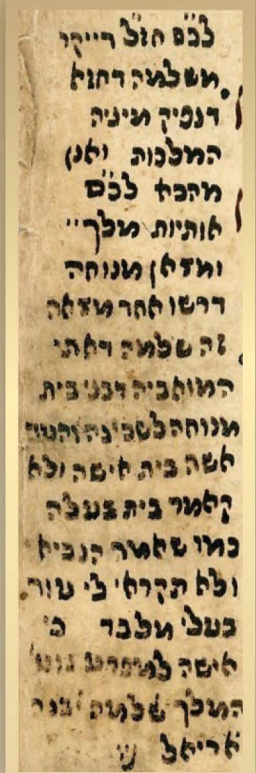 לכ״ם חז״ל דייקו
משלמה דתנא
דנפיק מיניה
המלכות ואנן
מהכא לכ״ם
אותיות מלך
ומצאן מנוחה
דרשו אחר מצאה
זה שלמה דאתי
המואביה דבני בית
מנוחה לשכינה
אשה בית אישה ולא
קאמר בית בעלה
כמו שאמר הנביא
ולא תקראי לי עוד
בעלי מלבד כי
אישה
המלך שלמה יבנה
אריאל